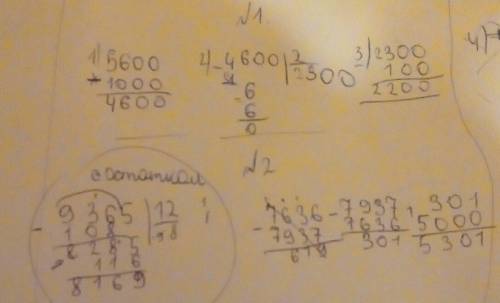 №1.
1) 5600
1000
4600
2) - 4600 | 2
4 | 2300
- 6
6
0
3) 2300
100
2200
4)
с остатком
№2
- 9365 | 12
108
8285
8169
- 7636
7937
- 7937
7636
301
301
5000
5301